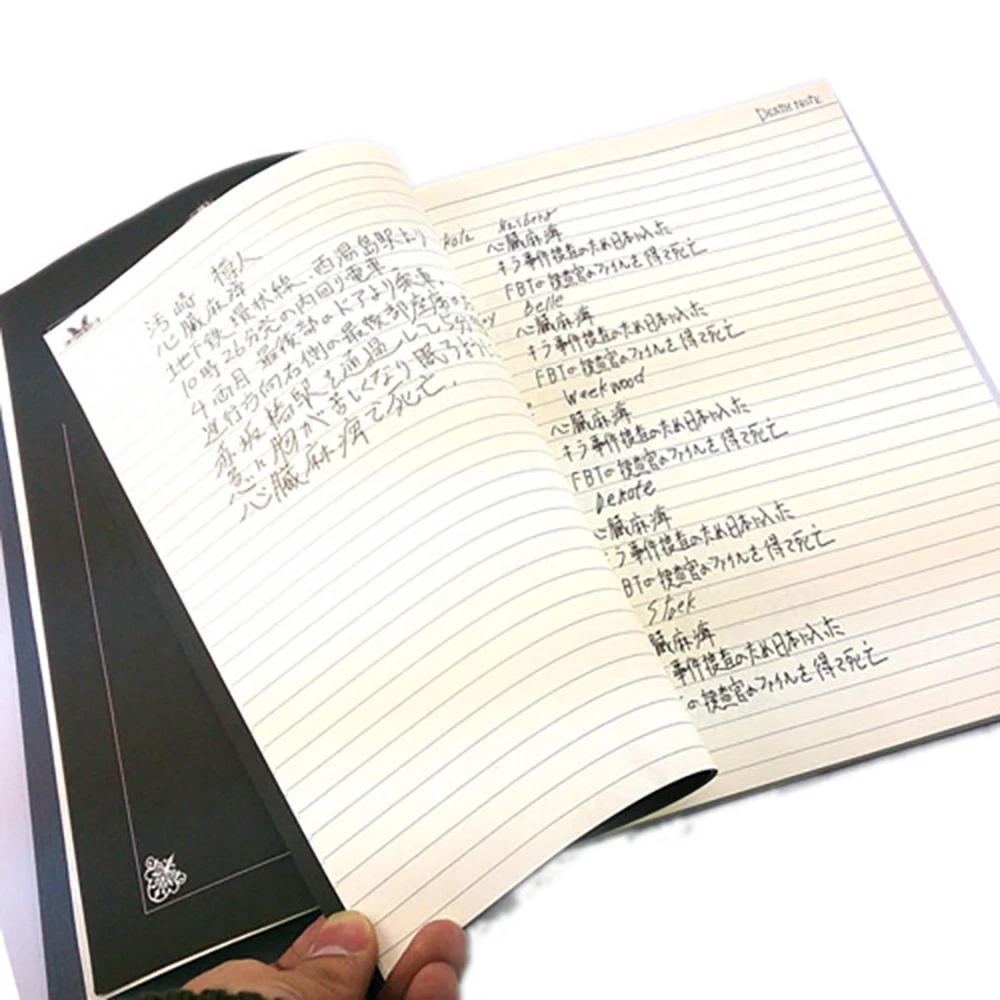 樹人
心臓麻痺
地下鉄、環状線、西湯島駅より
10時26分発の内回り電車
4両目 最後部のドアより乗車。
進行方向右側の最後部座席の
赤坂橋駅を通過して5分
急に胸が苦しくなり眠るように
心臓麻痺で死亡.
DEATH NOTE
心臓麻痺
キラ事件捜査のため日本に入った
FBIの捜査官のファイルを得て死亡
Belle
心臓麻痺
キラ事件捜査のため日本に入った
FBIの捜査官のファイルを得て死亡
Weekwood
心臓麻痺
キラ事件捜査のため日本に入った
FBIの捜査官のファイルを得て死亡
Denote
心臓麻痺
ラ事件捜査のため日本に入った
BIの捜査官のファイルを得て死亡
臓麻痺
事件捜査のため日本に入った
の捜査官のファイルを得て死亡